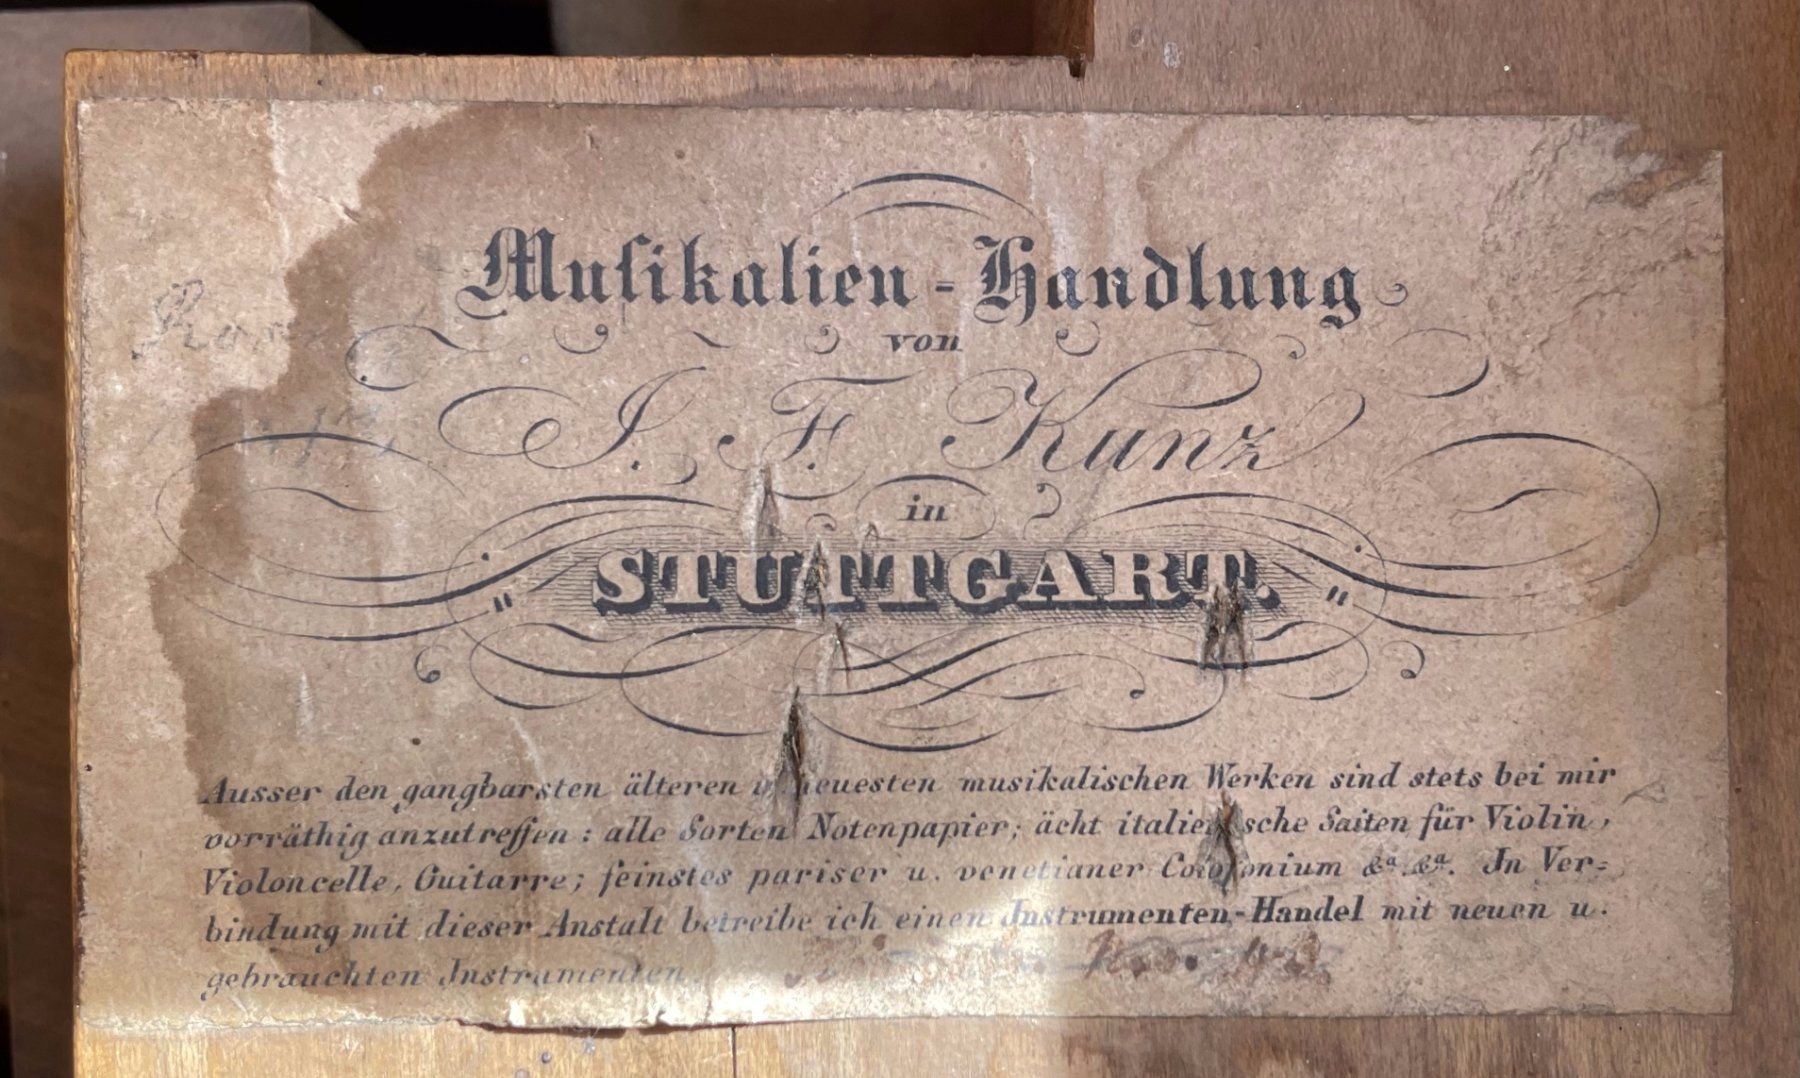 Muſikalien-Handlung
von
I. F. Kunz
in
"STUTTGART."
Ausser den gangbarsten älteren u. neuesten musikalischen Werken sind stets bei mir
vorräthig anzutreffen: alle Sorten Notenpapier; ächt italienische Saiten für Violin,
Violoncelle, Guitarre; feinstes pariser u. venetianer Colofonium &a. &a. In Ver=
bindung mit dieser Anstalt betreibe ich einen Instrumenten-Handel mit neuen u.
gebrauchten Instrumenten.